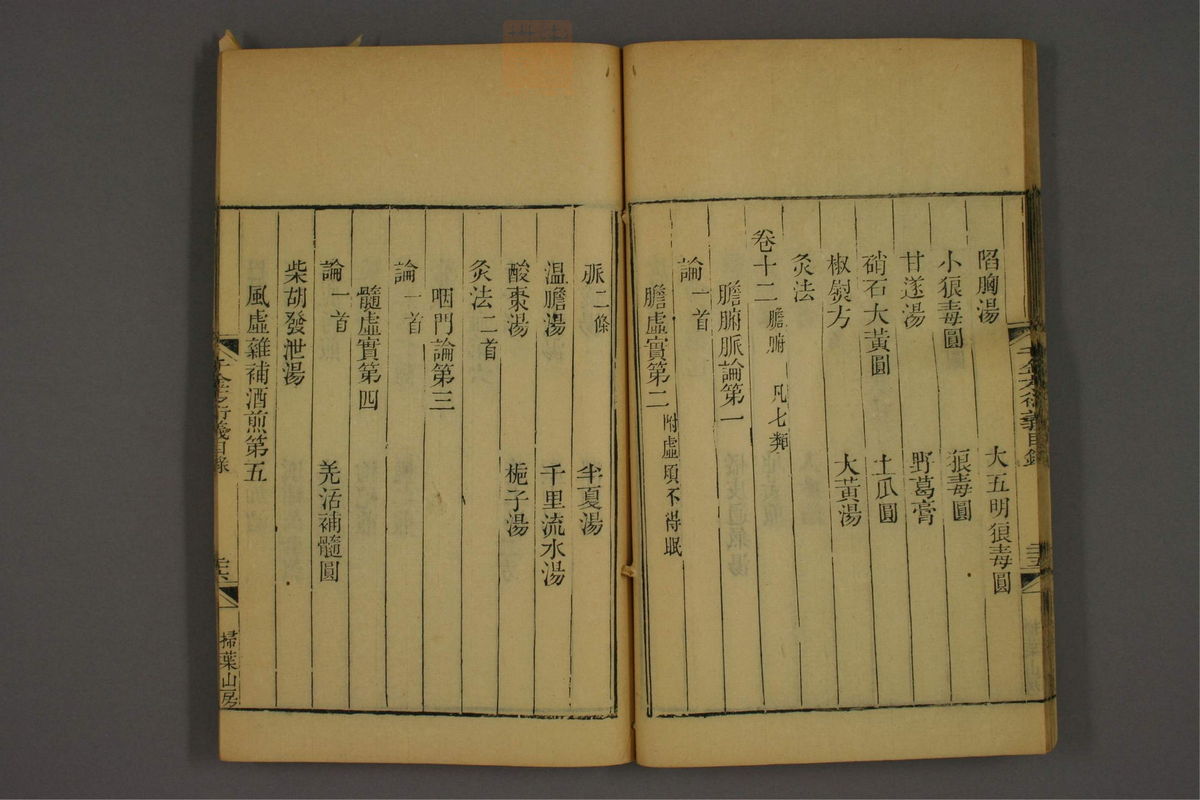 陷胸湯　大五明狼毒圓
小狼毒圓　狼毒圓
甘遂湯　野葛膏
硝石大黃圓　土瓜圓
椒熨方　大黃湯
灸法
卷十二膽腑　凡七類
膽腑脈論第一
論一首
膽虛實第二附虛煩不得眠
脈二條　半夏湯
溫膽湯　千里流水湯
酸棗湯　梔子湯
灸法二首
咽門論第三
論一首
髓虛實第四
論一首　羌活補髓圓
柴胡發泄湯
風虛雜補酒煎第五
千金方衍義目錄
掃葉山房